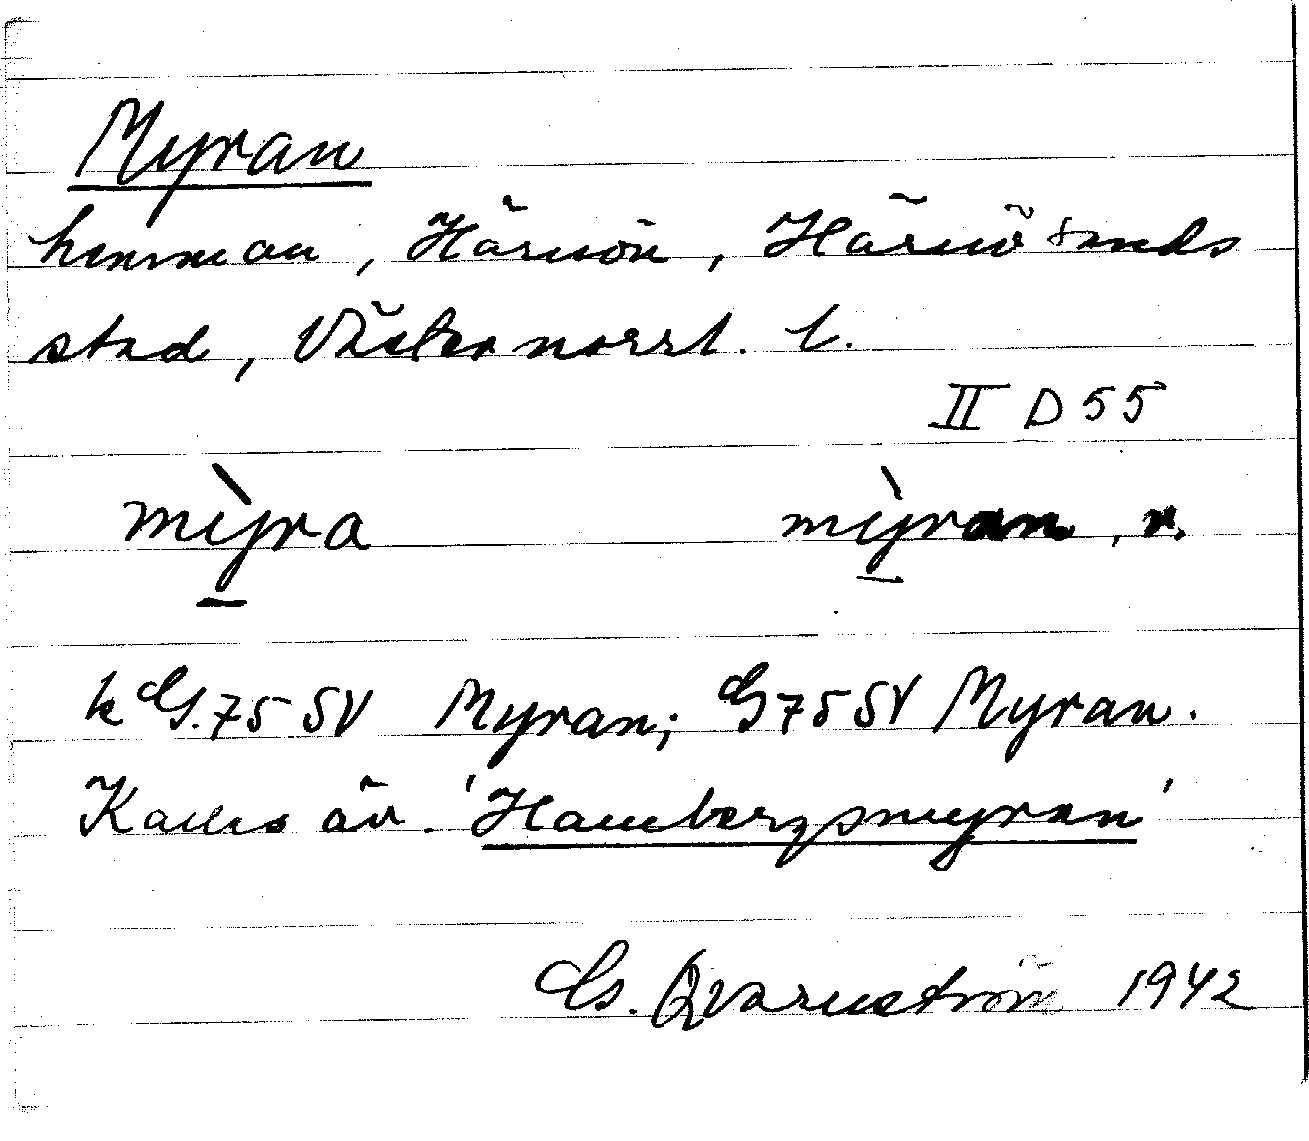 Myran
hemman, Härnön, Härnösands
stad, Västernorrl. l.
II D 55
mỳra mỳran, r.
k G. 75 SV Myran; G 75 SV Myran.
Kallas äv. 'Hambergsmyran'
G. Qvarnström 1942